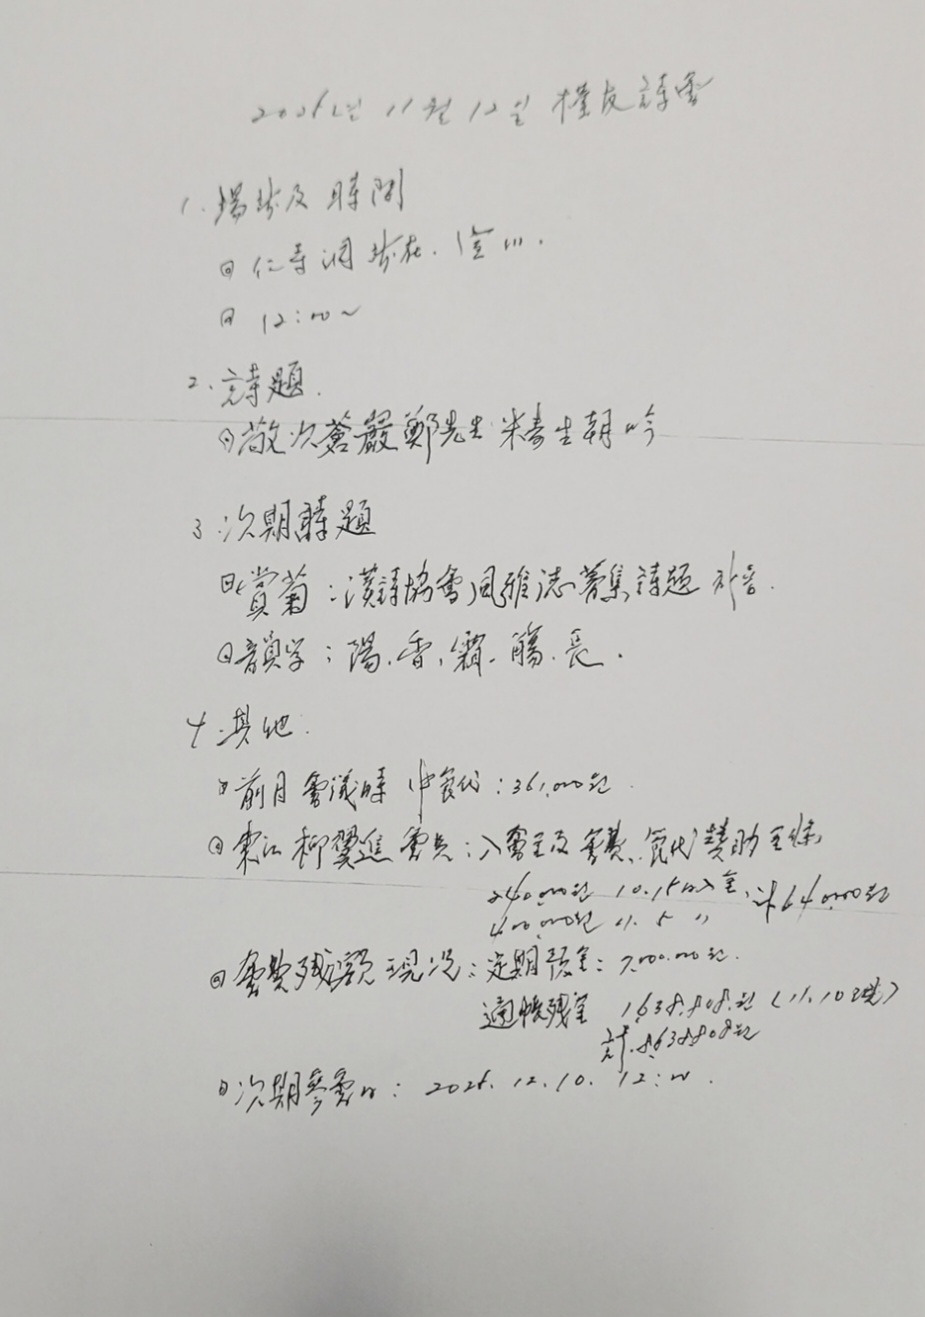 2026년 11월 12일 槿友詩會
1. 場所及 時間
仁寺洞 所在.
12:00~
2. 詩題.
敬次蒼嚴鄭先生 米壽生朝吟
3. 次期詩題
賞菊 : 漢詩協會 風雅誌 募集詩題
韻字 : 陽. 香. 霜. 觴. 長.
4. 其他.
前月 會議時 中食代 : 361,000원.
東江 柳 進 會長 : 入會金及 會費. 食代 贊助
240,000원 10.15 入金. 計 640,000원
400,000원 11. 5 〃
會費残額 現況 : 定期預金 : 7,000,000원.
通帳残金 1,638,808원 (11.10 現)
計. 8,638,808원
次期 會日 : 2026. 12. 10. 12:00.